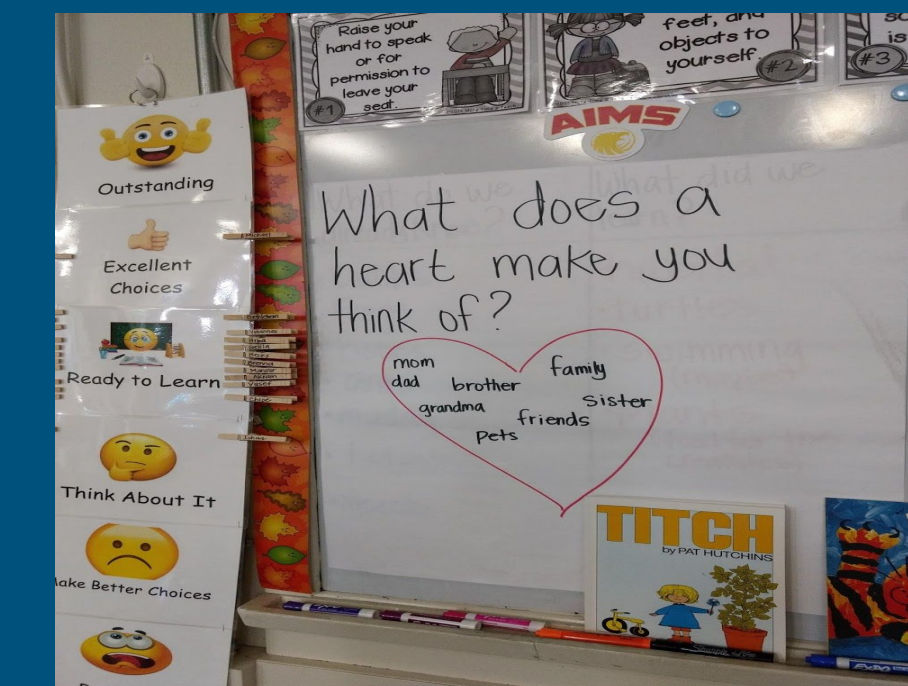 Raise your
hand to speak
or for
permission to
leave your
seat.
#1
feet, and
objects to
yourself.
#2
is
#3
AIMS
Outstanding
Excellent
Choices
Ready to Learn
Think About It
Make Better Choices
What does a
heart make you
think of?
mom
dad
brother
family
grandma
sister
friends
pets
TITCH
by PAT HUTCHINS
EXPO